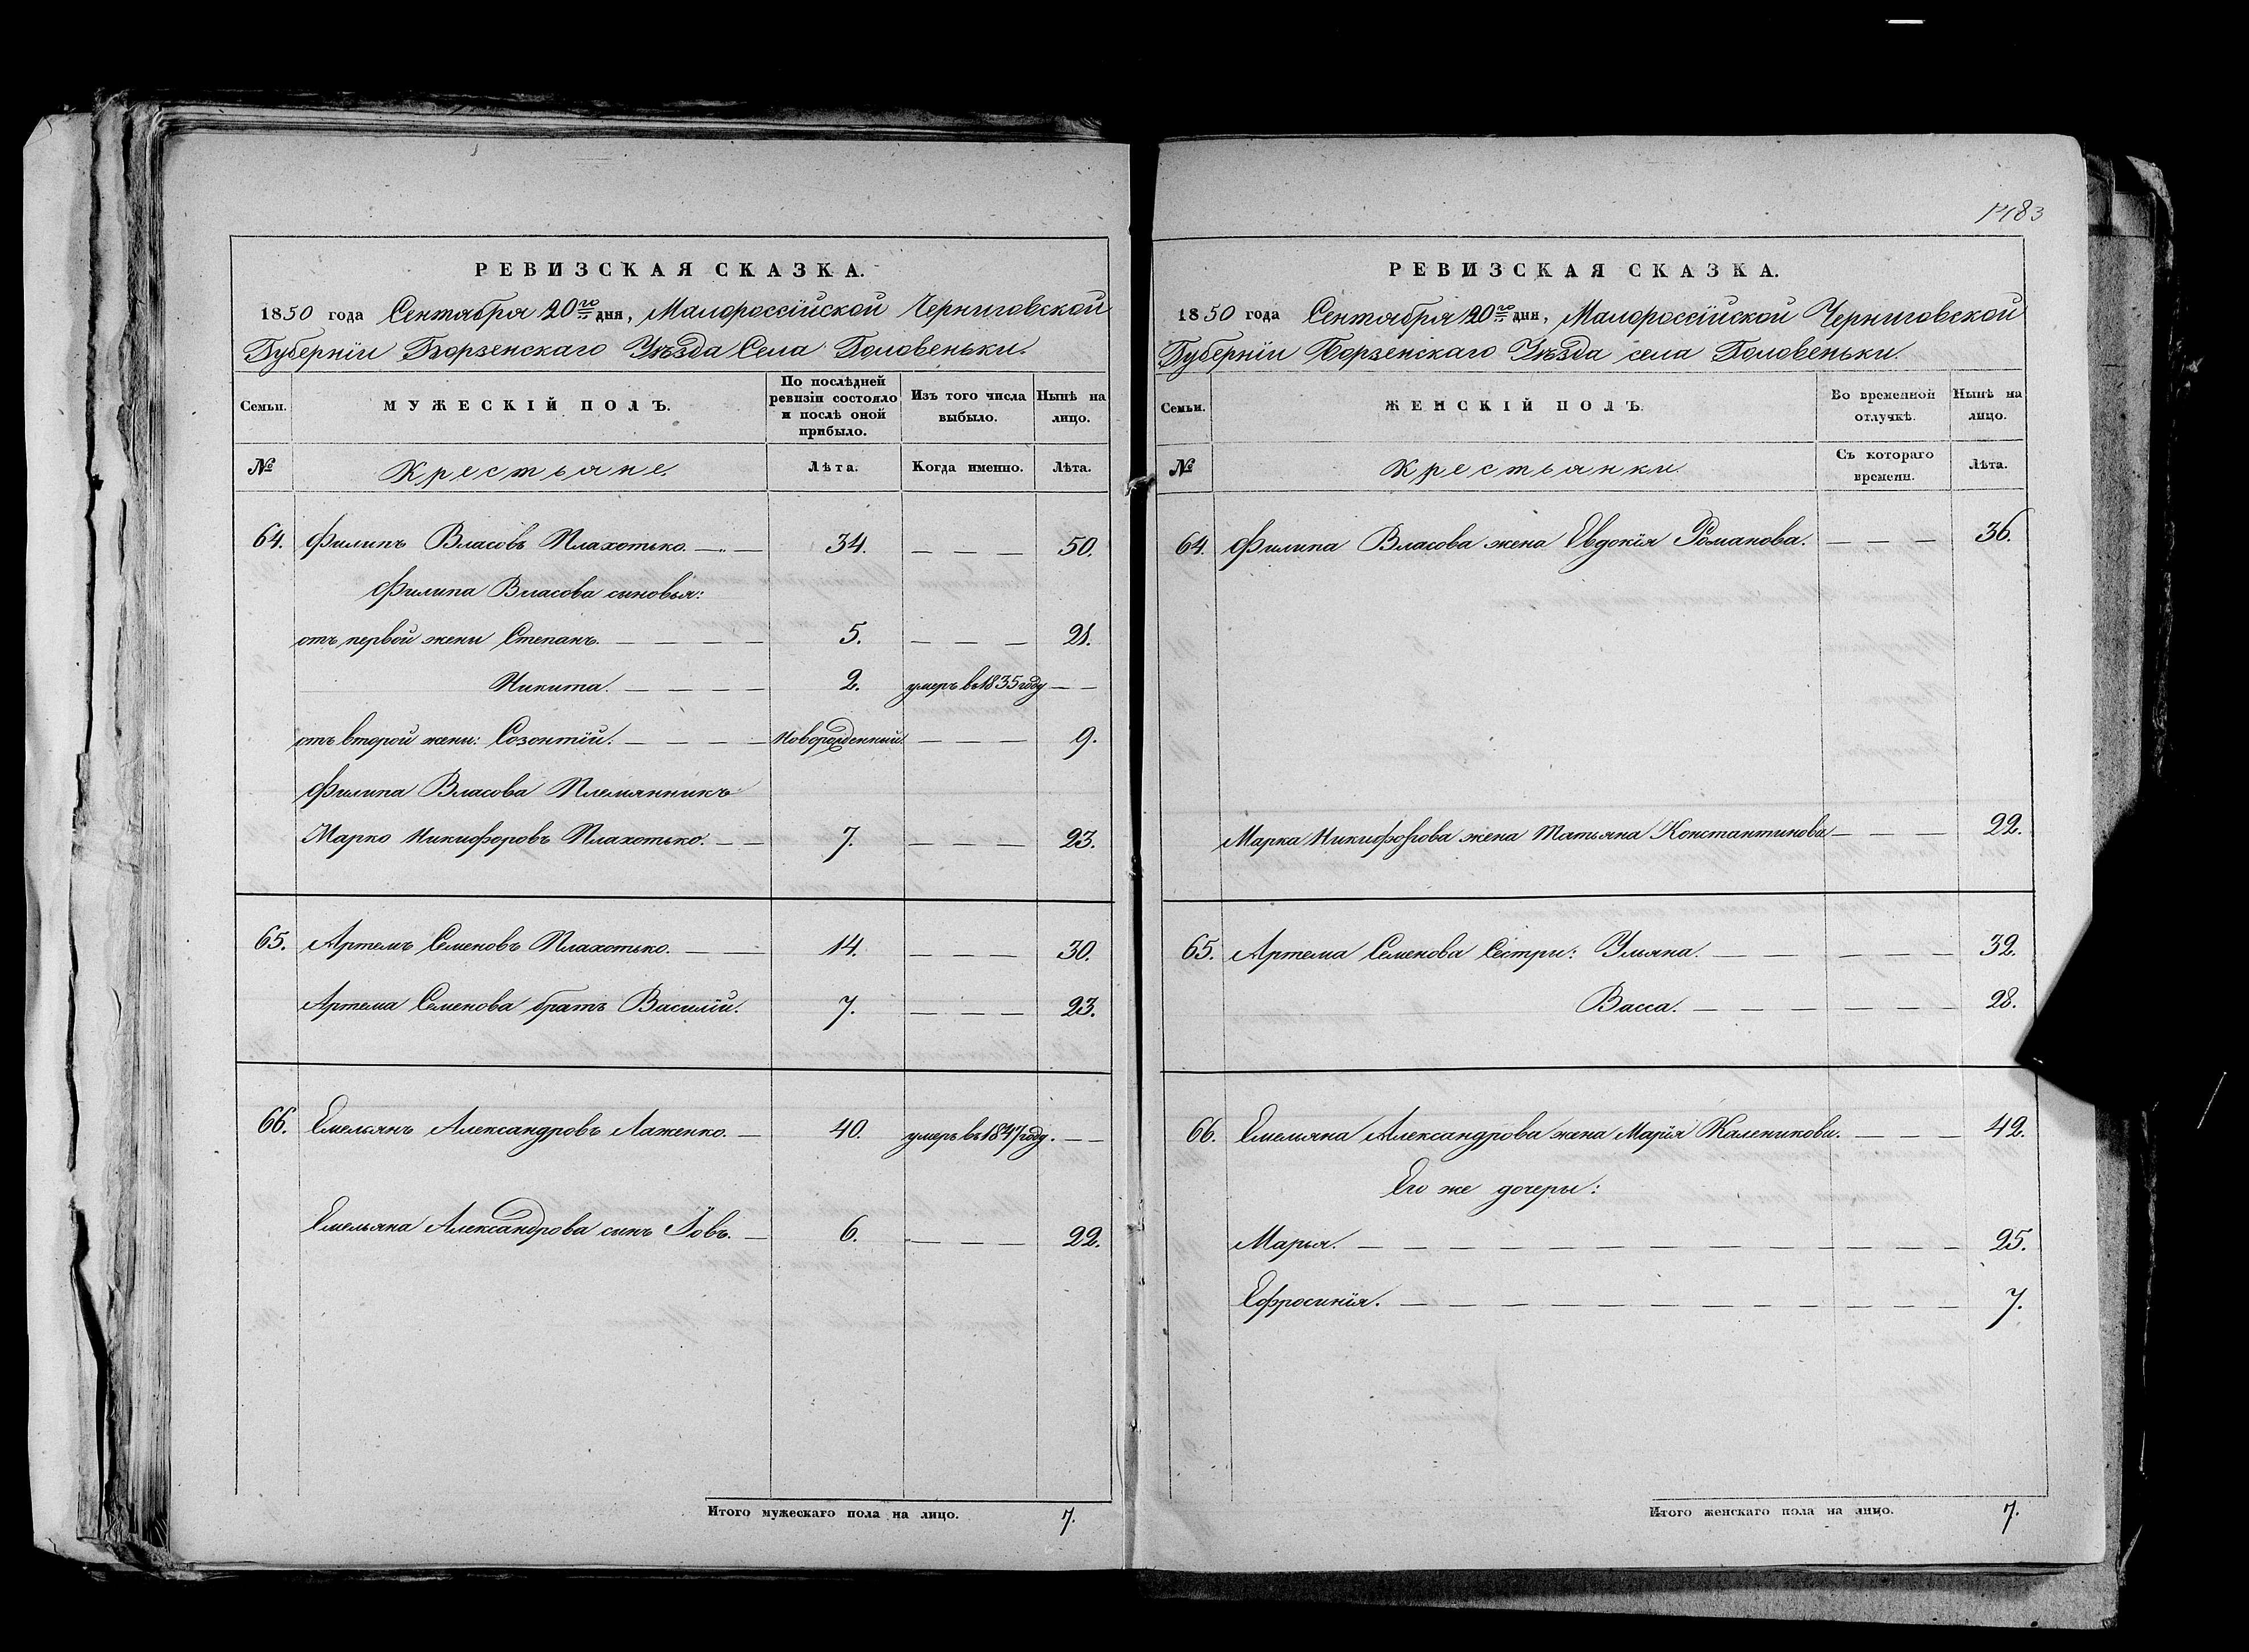 РЕВИЗСКАЯ СКАЗКА.
1850 года Сентября 20го дня, Малороссійской Черниговской
Губерніи Борзенскаго Уѣзда Села Головеньки.
Семьи.
МУЖЕСКІЙ ПОЛЪ.
По послѣдней
ревизіи состояло
и послѣ оной
прибыло.
Изъ того числа
выбыло.
Нынѣ на
лицо.
№
Крестьяне.
Лѣта.
Когда именно.
Лѣта.
64. Филипъ Власовъ Плахотько. — — 34. — — — 50.
Филипа Власова сыновья:
отъ первой жены Степанъ. — — — — 5. — — — 21.
Никита. — — — — 2. умеръ въ 1835 году — —
отъ второй жены: Созонтій. — — — — Новорожденный. — — — 9.
Филипа Власова Племянникъ
Марко Никифоровъ Плахотько. — — 7. — — — 23.
65. Артемъ Семеновъ Плахотько. — — 14. — — — 30.
Артема Семенова братъ Василій. 7. — — — 23.
66. Емельянъ Александровъ Лаженко. — 40. умеръ въ 1847 году. — —
Емельяна Александрова сынъ Іовъ. — 6. — — — 22.
Итого мужескаго пола на лицо. 7.
1483
РЕВИЗСКАЯ СКАЗКА.
1850 года Сентября 20го дня, Малороссійской Черниговской
Губерніи Борзенскаго Уѣзда села Головеньки.
Семьи.
ЖЕНСКІЙ ПОЛЪ.
Во временной
отлучкѣ.
Нынѣ на
лицо.
№
Крестьянки.
Съ котораго
времени.
Лѣта.
64. Филипа Власова жена Евдокія Романова. — — — 36.
Марка Никифорова жена Татьяна Константинова — — — 22.
65. Артема Семенова Сестры: Ульяна. — — — — — 32.
Васса. — — — — — — 28.
66. Емельяна Александрова жена Марія Каленикова. — — — 42.
Его же дочеры:
Марья. — — — — — — — — — — — — — 25.
Ефросинія. — — — — — — — — — — — — 7.
Итого женскаго пола на лицо. 7.